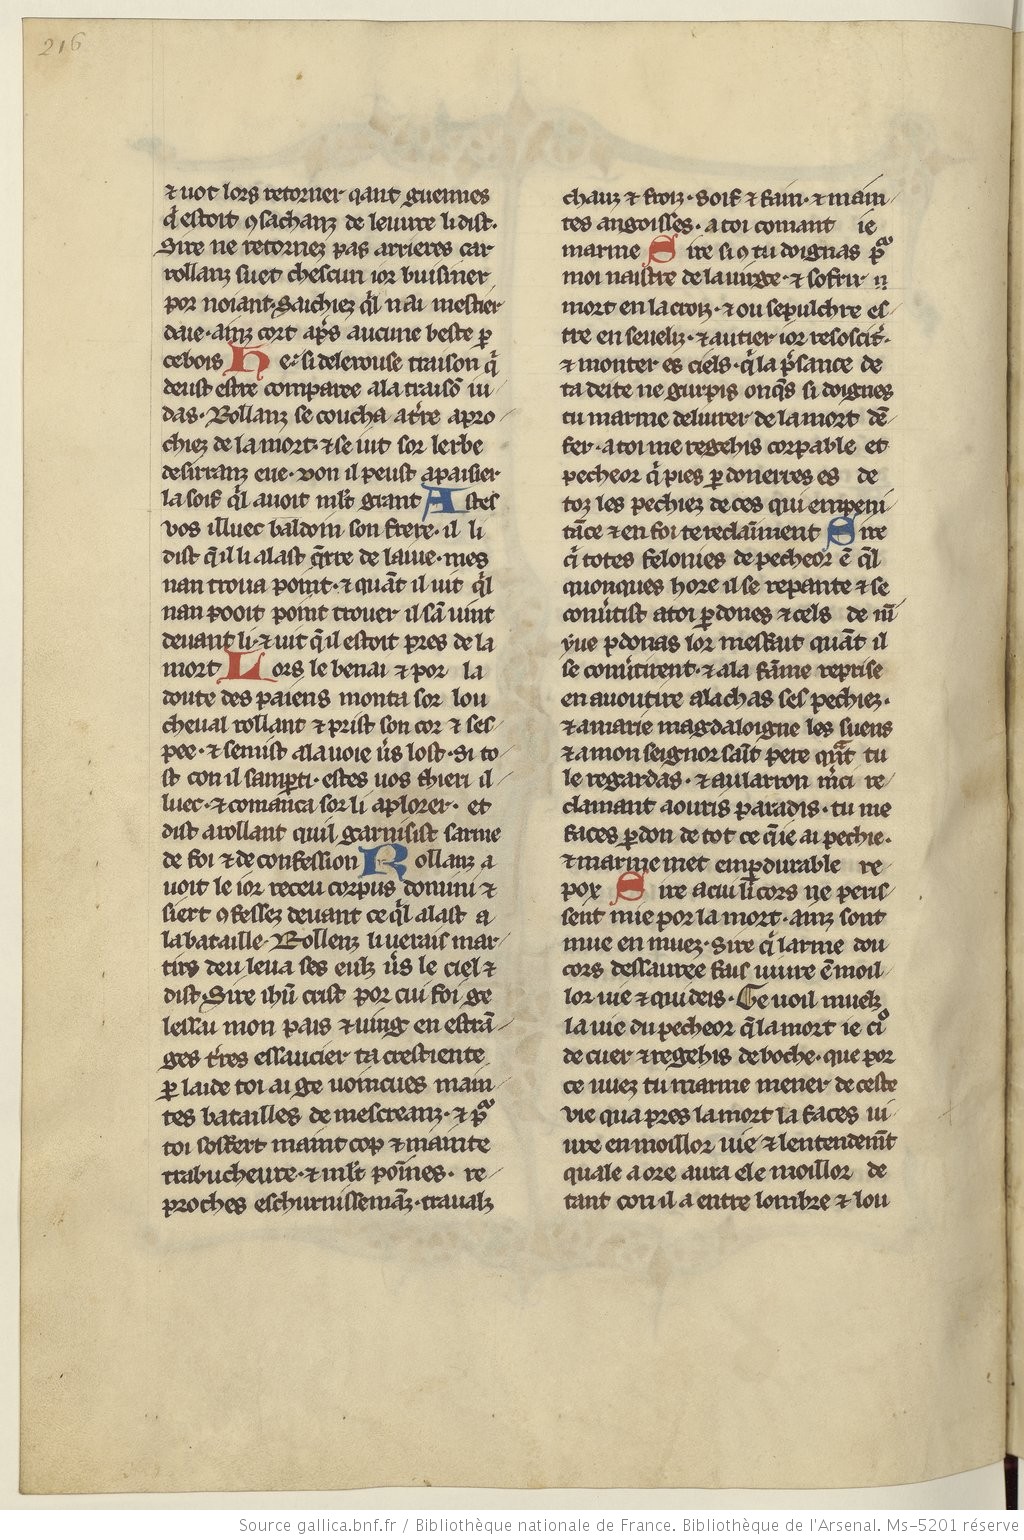 216
⁊ uot lors retorner qant guennes
q̓ estoit ꝯsachanz de leuure li dist·
Sire ne retornez pas arrieres car
rollanz suet chescun ior buisiner
por noiant· Sachiez q̓l nai mestier
daie· ainz cort ap̓s aucune beste ꝑ
ce bois He· si delerouse traison q̓
deust estre comparee ala traisō iu
das· Rollanz se coucha at̓re apro
chiez de la mort· ⁊ se uit sor lerbe
desirranz eue· don il peust apaisier
la soif q̓l auoit ml̓t grant Astes
vos illuec baldoin son frere· il li
dist q̄ il li alast q̄rre de laiue· mes
nan troua point· ⁊ quāt il uit q̓l
nan pooit point trouer il sā uint
deuant li· ⁊ uit q̄ il estoit pres de la
mort Lors le benai ⁊ por la
doute des paiens monta sor lou
cheual rollant ⁊ prist son cor ⁊ ses
pee· ⁊ semist ala uoie u̓s lost· Si to
st con il sanꝑti· estes uos thieri il
luec· ⁊ comanca sor li aplorer· et
dist arollant quil garnisist sarme
de foi ⁊ de confession Rollanz a
uoit le ior receu corpus domini ⁊
siert ꝯfessez deuant ce q̓l alast a
la bataille· Rollenz li uerais mar
tirs deu leua ses eulz u̓s le ciel ⁊
dist· Sire ihū crist por cui foi ge
lessai mon pais ⁊ uing en estrā
ges t̓res essaucier ta crestiente
ꝑ laide toi ai ge uoincues main
tes batailles de mescreanz· ⁊ pᵒ
toi soffert maint cop ⁊ mainte
trabucheure· ⁊ ml̓t poīnes· re
proches eschurnissemāz· traualz
chauz ⁊ froiz· soif ⁊ fain· ⁊ main
tes angoisses· a toi comant ie
marme Sire si ꝯ tu doignas pᵒ
moi naistre de la uirge· ⁊ sofrir
mort en la croiz· ⁊ ou sepulchre es
tre en seueliz· ⁊ au tier ior resoscit̓·
⁊ monter es ciels· q̓ la p̓sance de
ta deite ne gurpis onq̄s si doignes
tu marme deliurer de la mort dē
fer· a toi me regehis corpable et
pecheor q̓ pies ꝑdonerres es de
toz les pechiez de ces qui em peni
tāce ⁊ en foi te reclaīment Sire
q̓ totes felonies de pecheor ē q̓l
quonques hore il se repante ⁊ se
conu̓tist a toi ꝑdones ⁊ cels de nī
yue ꝑdonas lor mesfait quāt il
se conu̓tirent· ⁊ ala fāme reprise
en auoutire alachas ses pechiez·
⁊ a marie magdaloigne les suens
⁊ a mon seignor saīt pere quᵃt tu
le regardas· ⁊ au larron m̓ci re
clamant aouris paradis· tu me
faces ꝑdon de tot ce q̄ ie ai pechie·
⁊ marme met em ꝑdurable re
pox Sire a cui li cors ne peris
sent mie por la mort· ainz sont
mue en muez· Sire q̓ larme dou
cors dessauree fais uiure ē moil
lor uie ⁊ qui deis· Ge uoil muelz
la uie du pecheor q̄ la mort ie cᵒi
de cuer ⁊ regehis de boche· que por
ce uuez tu marme mener de ceste
vie qua pres la mort la faces ui
ure en moillor uie ⁊ lentendemt̄
quale a ore aura ele moillor de
tant con il a entre lombre ⁊ lou
Source gallica.bnf.fr / Bibliothèque nationale de France. Bibliothèque de l'Arsenal. Ms-5201 réserve